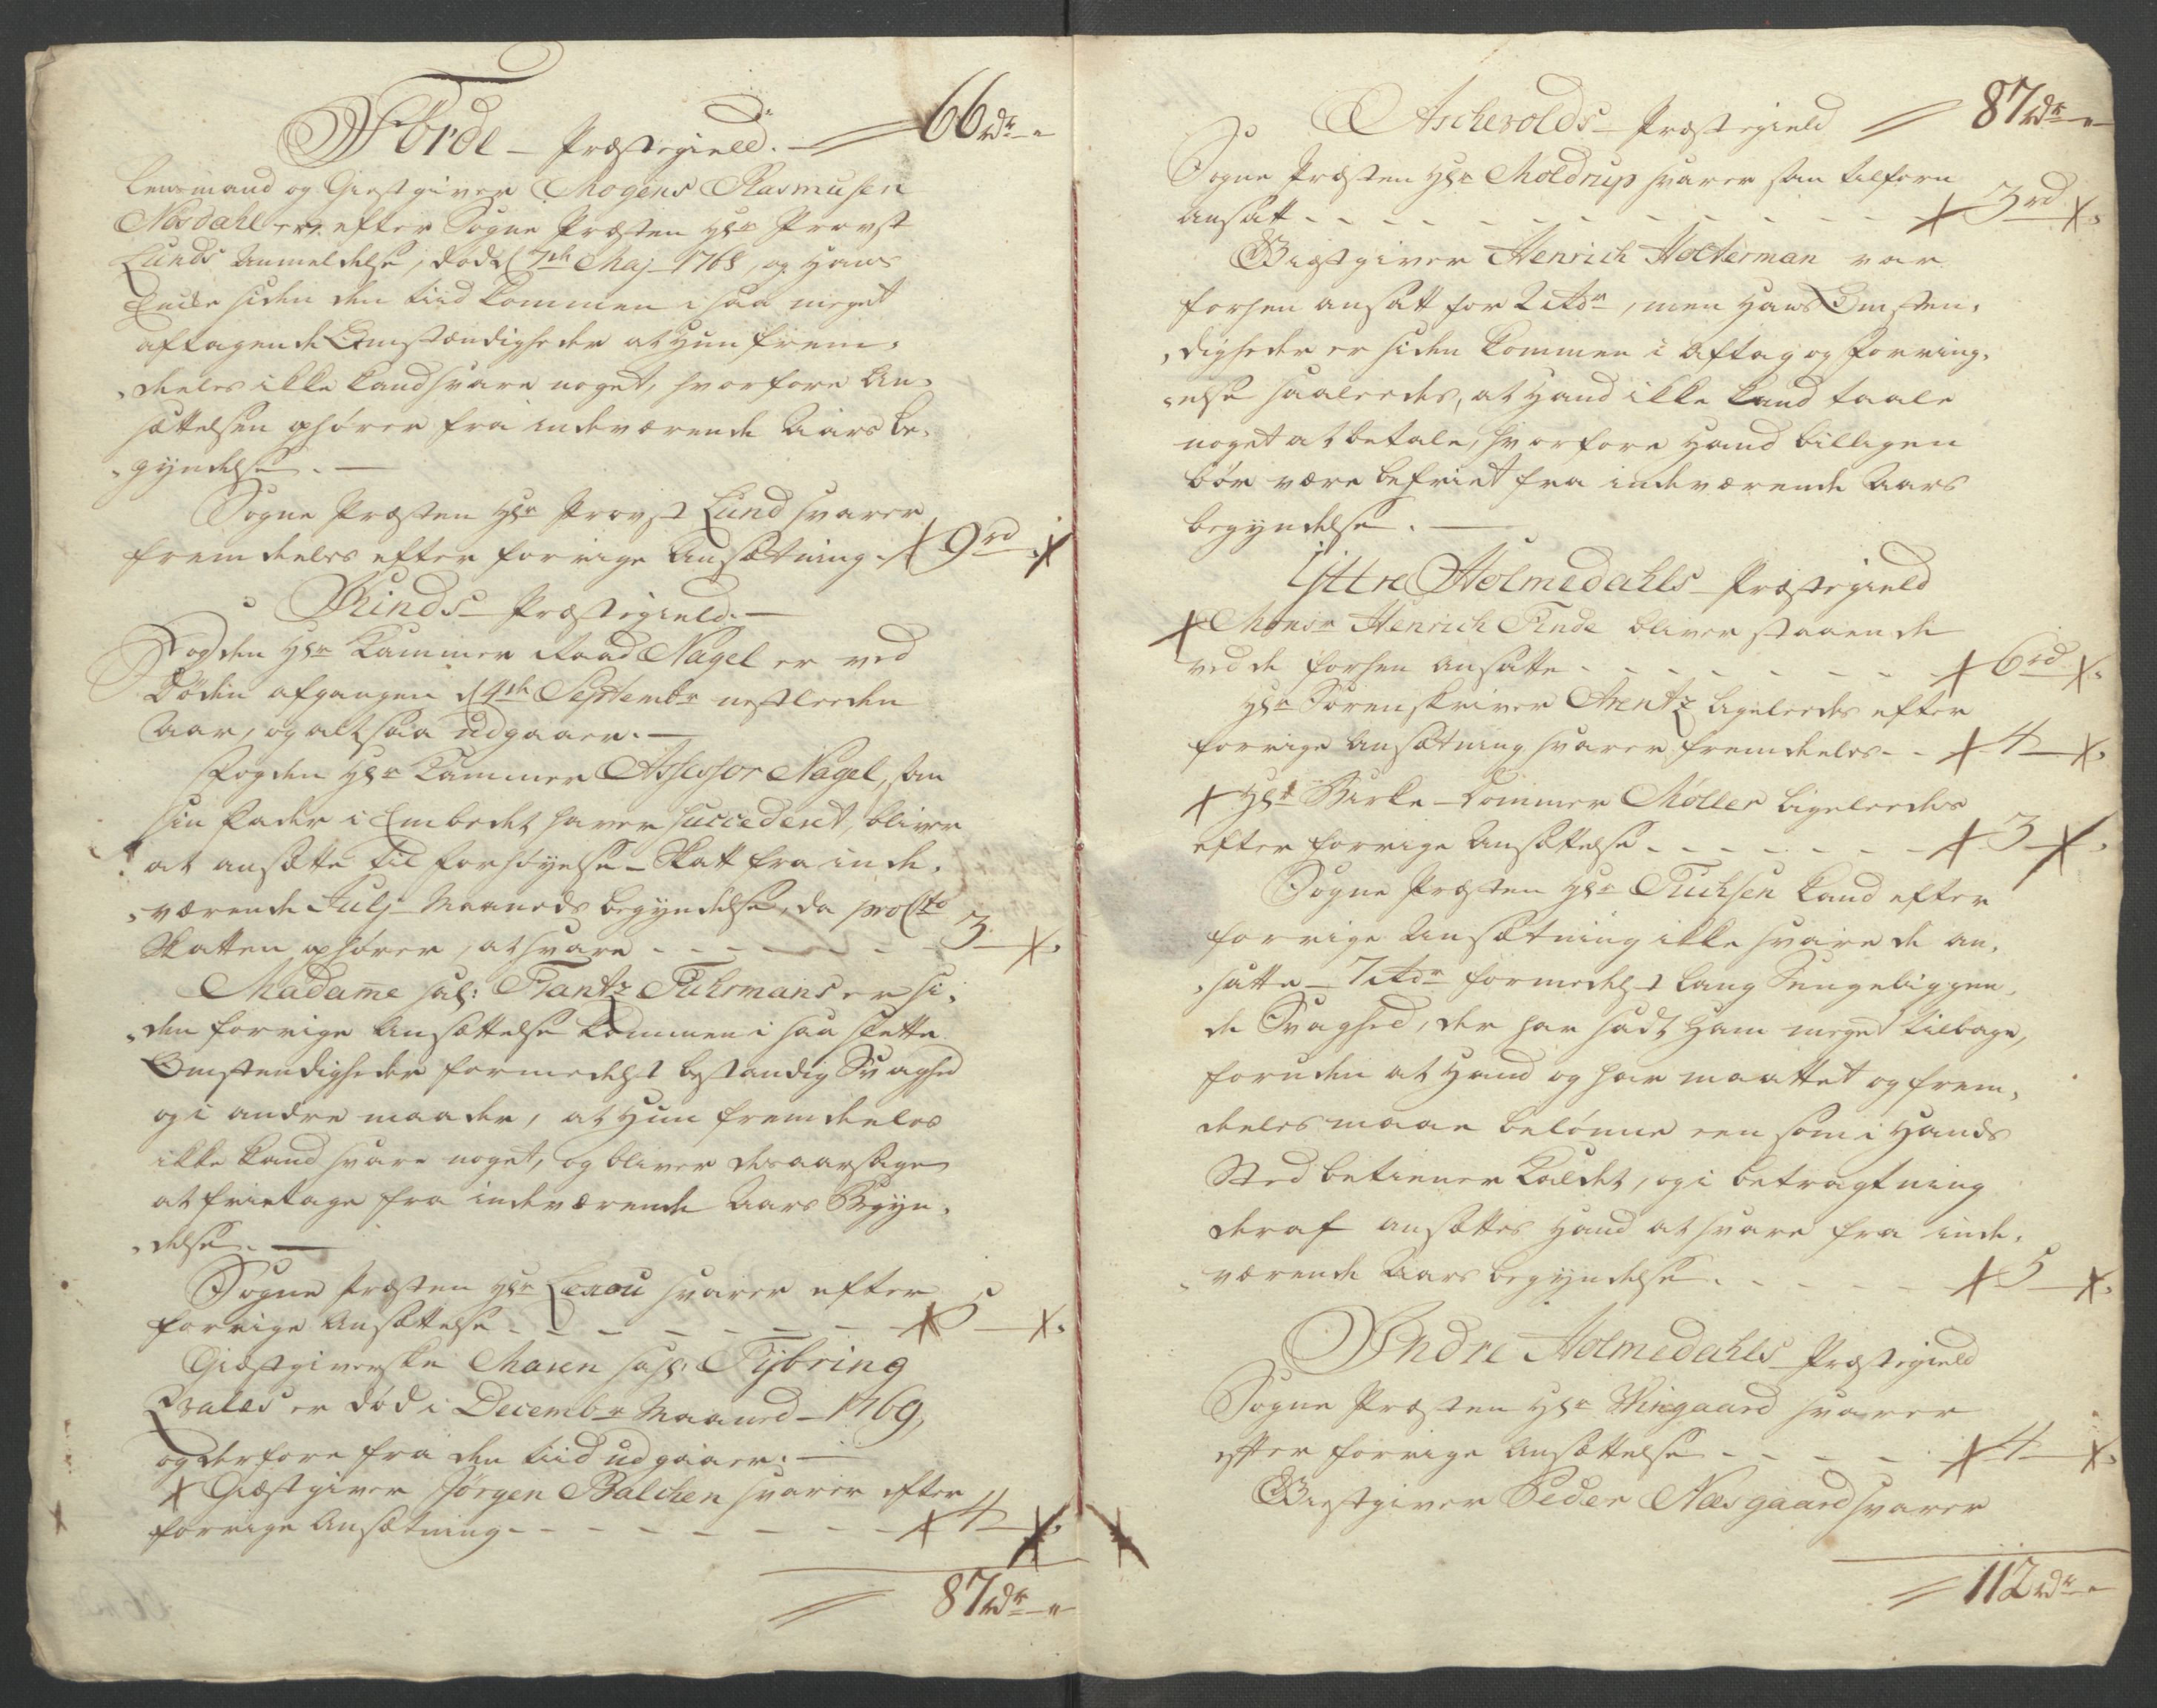 Förde – Præstegield. — 66 rdr –
Lensmand og Giestgiver Mogens Rasmusen
Nordahl er efter Sogne Præsten Hr Provst
Lunds Anmeldelse, død d 7de Maj 1768, og hans
Encke siden den tiid kommen i saa meget
aftagende Omstændigheder at hun frem-
deeles ikke kand svare noget, hvorfore An-
sættelsen ophører fra indeværende Aars be-
gyndelse. —
Sogne Præsten Hr Provst Lund svarer
fremdeeles efter forrige Ansætning. 9 rd
Kinds – Præstegield. —
Fogden Hr Kammer Raad Nagel er ved
Døden afgangen d 4de Septembr nestleeden
Aar, og altsaa udgaaer. —
Fogden Hr Kammer Assessor Nagel, som
sin Fader i Embedet haver succederet, bliver
at ansætte til Forhøyelse – Skatt fra inde-
værende Julj – Maaneds begyndelse, da pro Cto
Skatten ophører, at svare - - - - - 3 –
Madame sal: Frantz Fuhrmans er si-
den forrige Ansættelse kommen i saa slette
Omstendigheder formedelst bestandig Svaghed
og i andre maader, at hun fremdeeles
ikke kand svare noget, og bliver desaarsage
at fritage fra indeværende Aars Begyn-
delse. —
Sogne Præsten Hr Lexou svarer efter
forrige Ansættelse - - - - - - 5 –
Giestgiverske Maren sal: Tybring
Qvales er død i Decembr Maaned – 1769,
og derfore fra den tiid udgaaer. —
Giæstgiver Jörgen Balchen svarer efter
forrige Ansætning - - - - - - 4 –
87 rdr –
Aschevolds – Præstegield 87 rdr –
Sogne Præsten Hr Moldrup svarer som tilforn
ansatt - - - - - - - - - 3 rd
Giestgiver Henrich Holterman var
forhen ansatt for 2 Rdr, men hans Omsten-
digheder er siden kommen i Aftag og forring-
else saaleedes, at hand ikke kand taale
noget at betale, hvorfore hand billigen
bör være befriet fra indeværende Aars
begyndelse. —
Yttre Holmedahls – Præstegield
Monsr Henrich Finde bliver staaende
ved de forhen ansatte - - - - - - 6 rd
Hr Sorenskriver Arentz ligeleedes efter
forrige Ansætning svarer fremdeeles - - 4 –
Hr Birke – Dommer Möller ligeleedes
efter forrige Ansættelse - - - - - - 3 –
Sogne Præsten Hr Fuchsen kand efter
forrige Ansætning ikke svare de an-
satte – 7 Rdr formedelst lang Sengeliggen-
de Svaghed, der har sadt ham meget tilbage,
foruden at hand og har maattet og frem-
deeles maae belönne een som i hands
Sted betiener Kaldet, og i betragtning
deraf ansættes hand at svare fra inde-
værende Aars begyndelse - - - - - 5 –
Indre Holmedahls – Præstegield
Sogne Præsten Hr Wiingaard svarer
efter forrige Ansættelse - - - - 4 –
Giestgiver Peder Næsgaard svarer
112 rdr –